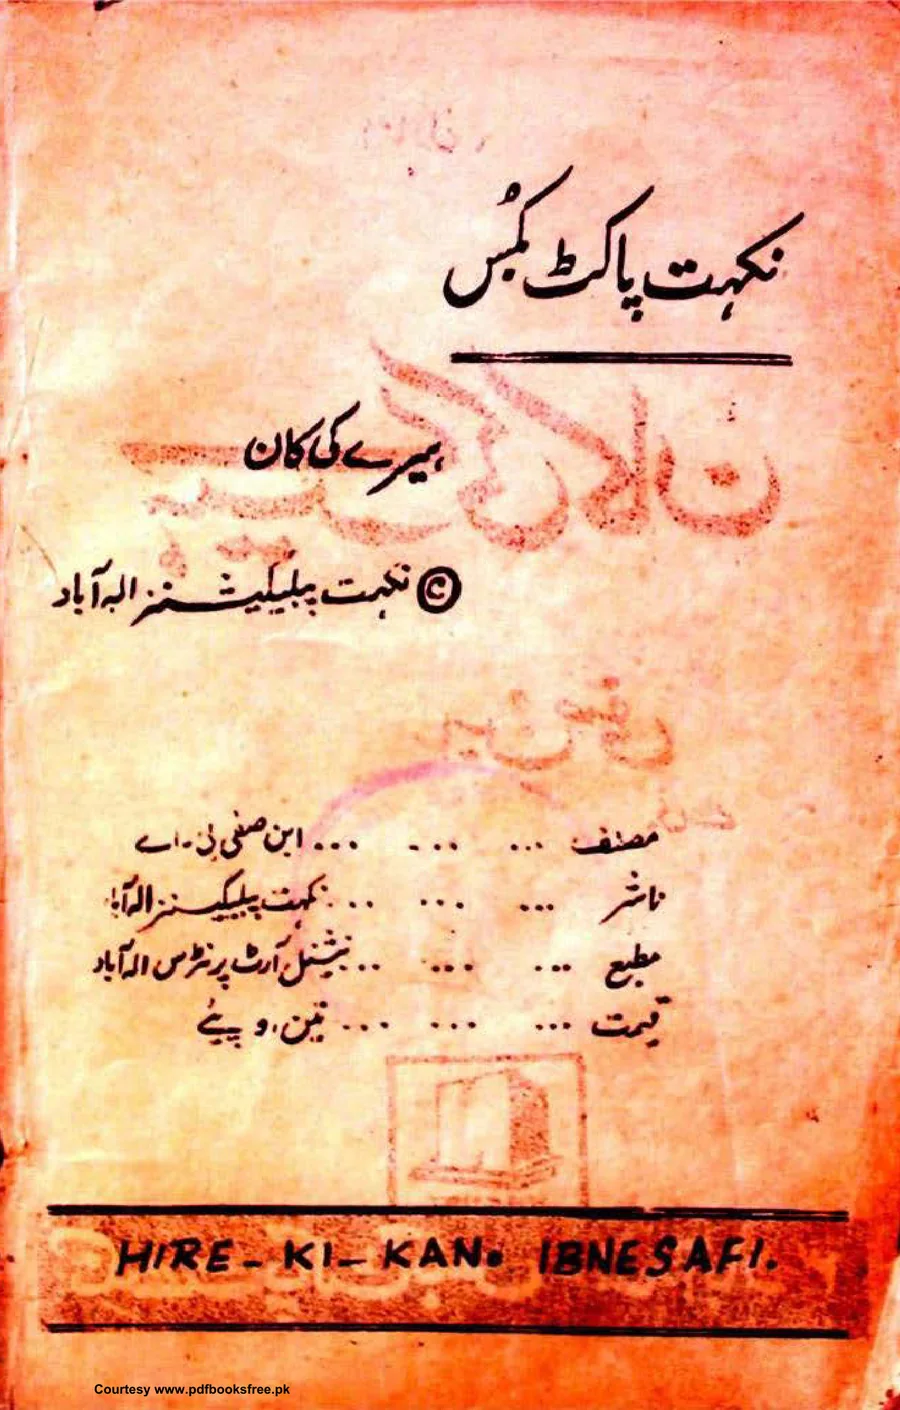 نکہت پاکٹ بکس
ہیرے کی کان
© نکہت پبلیکیشنز الہ آباد
مصنف ... ... ... ابن صفی بی۔اے
ناشر ... ... ... نکہت پبلیکیشنز الہ آباد
مطبع ... ... ... نیشنل آرٹ پرنٹرس الہ آباد
قیمت ... ... ... تین روپیئے
HIRE - KI - KAN. IBNESAFI.
Courtesy www.pdfbooksfree.pk